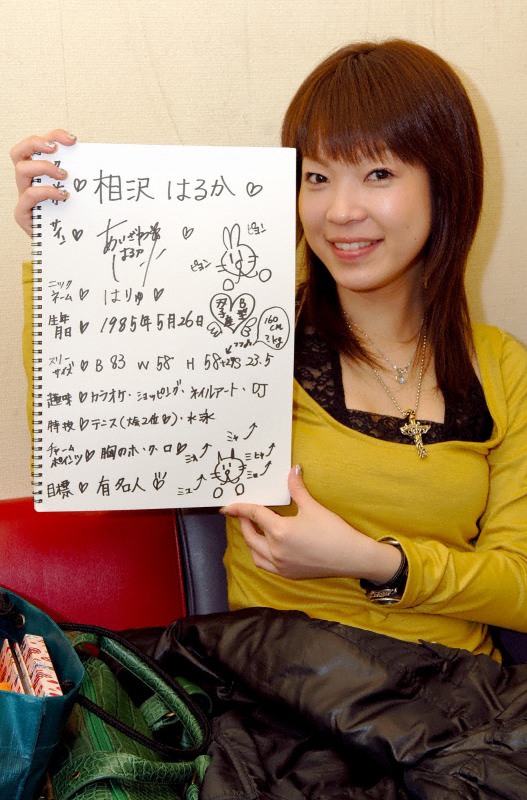 相沢 はるか
サイン あいざわ はるか
ピョン
ピョン
ニックネーム はりゅ
生年月日 1985年5月26日
双子座 B型
160cm ?kg
スリーサイズ B 83 W 58 H 58+28 23.5
趣味 カラオケ・ショッピング・ネイルアート・DJ
特技 テニス(大阪2位)・水泳
チャームポイント 胸のホ・ク・ロ
目標 有名人
ミャ ミュ